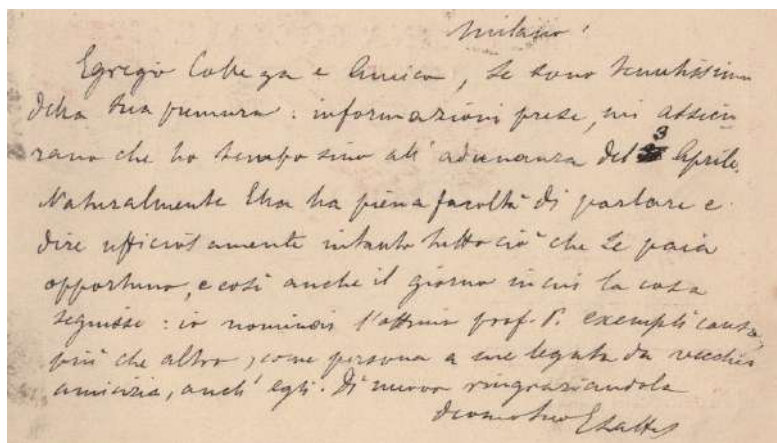 Milano
Egregio Collega e Amico, Le sono tenutissimo
della Sua premura: informazioni prese, mi assicu
rano che ho tempo sino all'adunanza del 3 Aprile.
Naturalmente Ella ha piena facoltà di parlare e
dire ufficiosamente intanto tutto ciò che Le paia
opportuno, e così anche il giorno in cui la cosa
seguisse: io nominai l'ottimo prof. P. exempli causa,
più che altro, come persona a me legata da vecchia
amicizia, anch'egli. Di nuovo ringraziandola